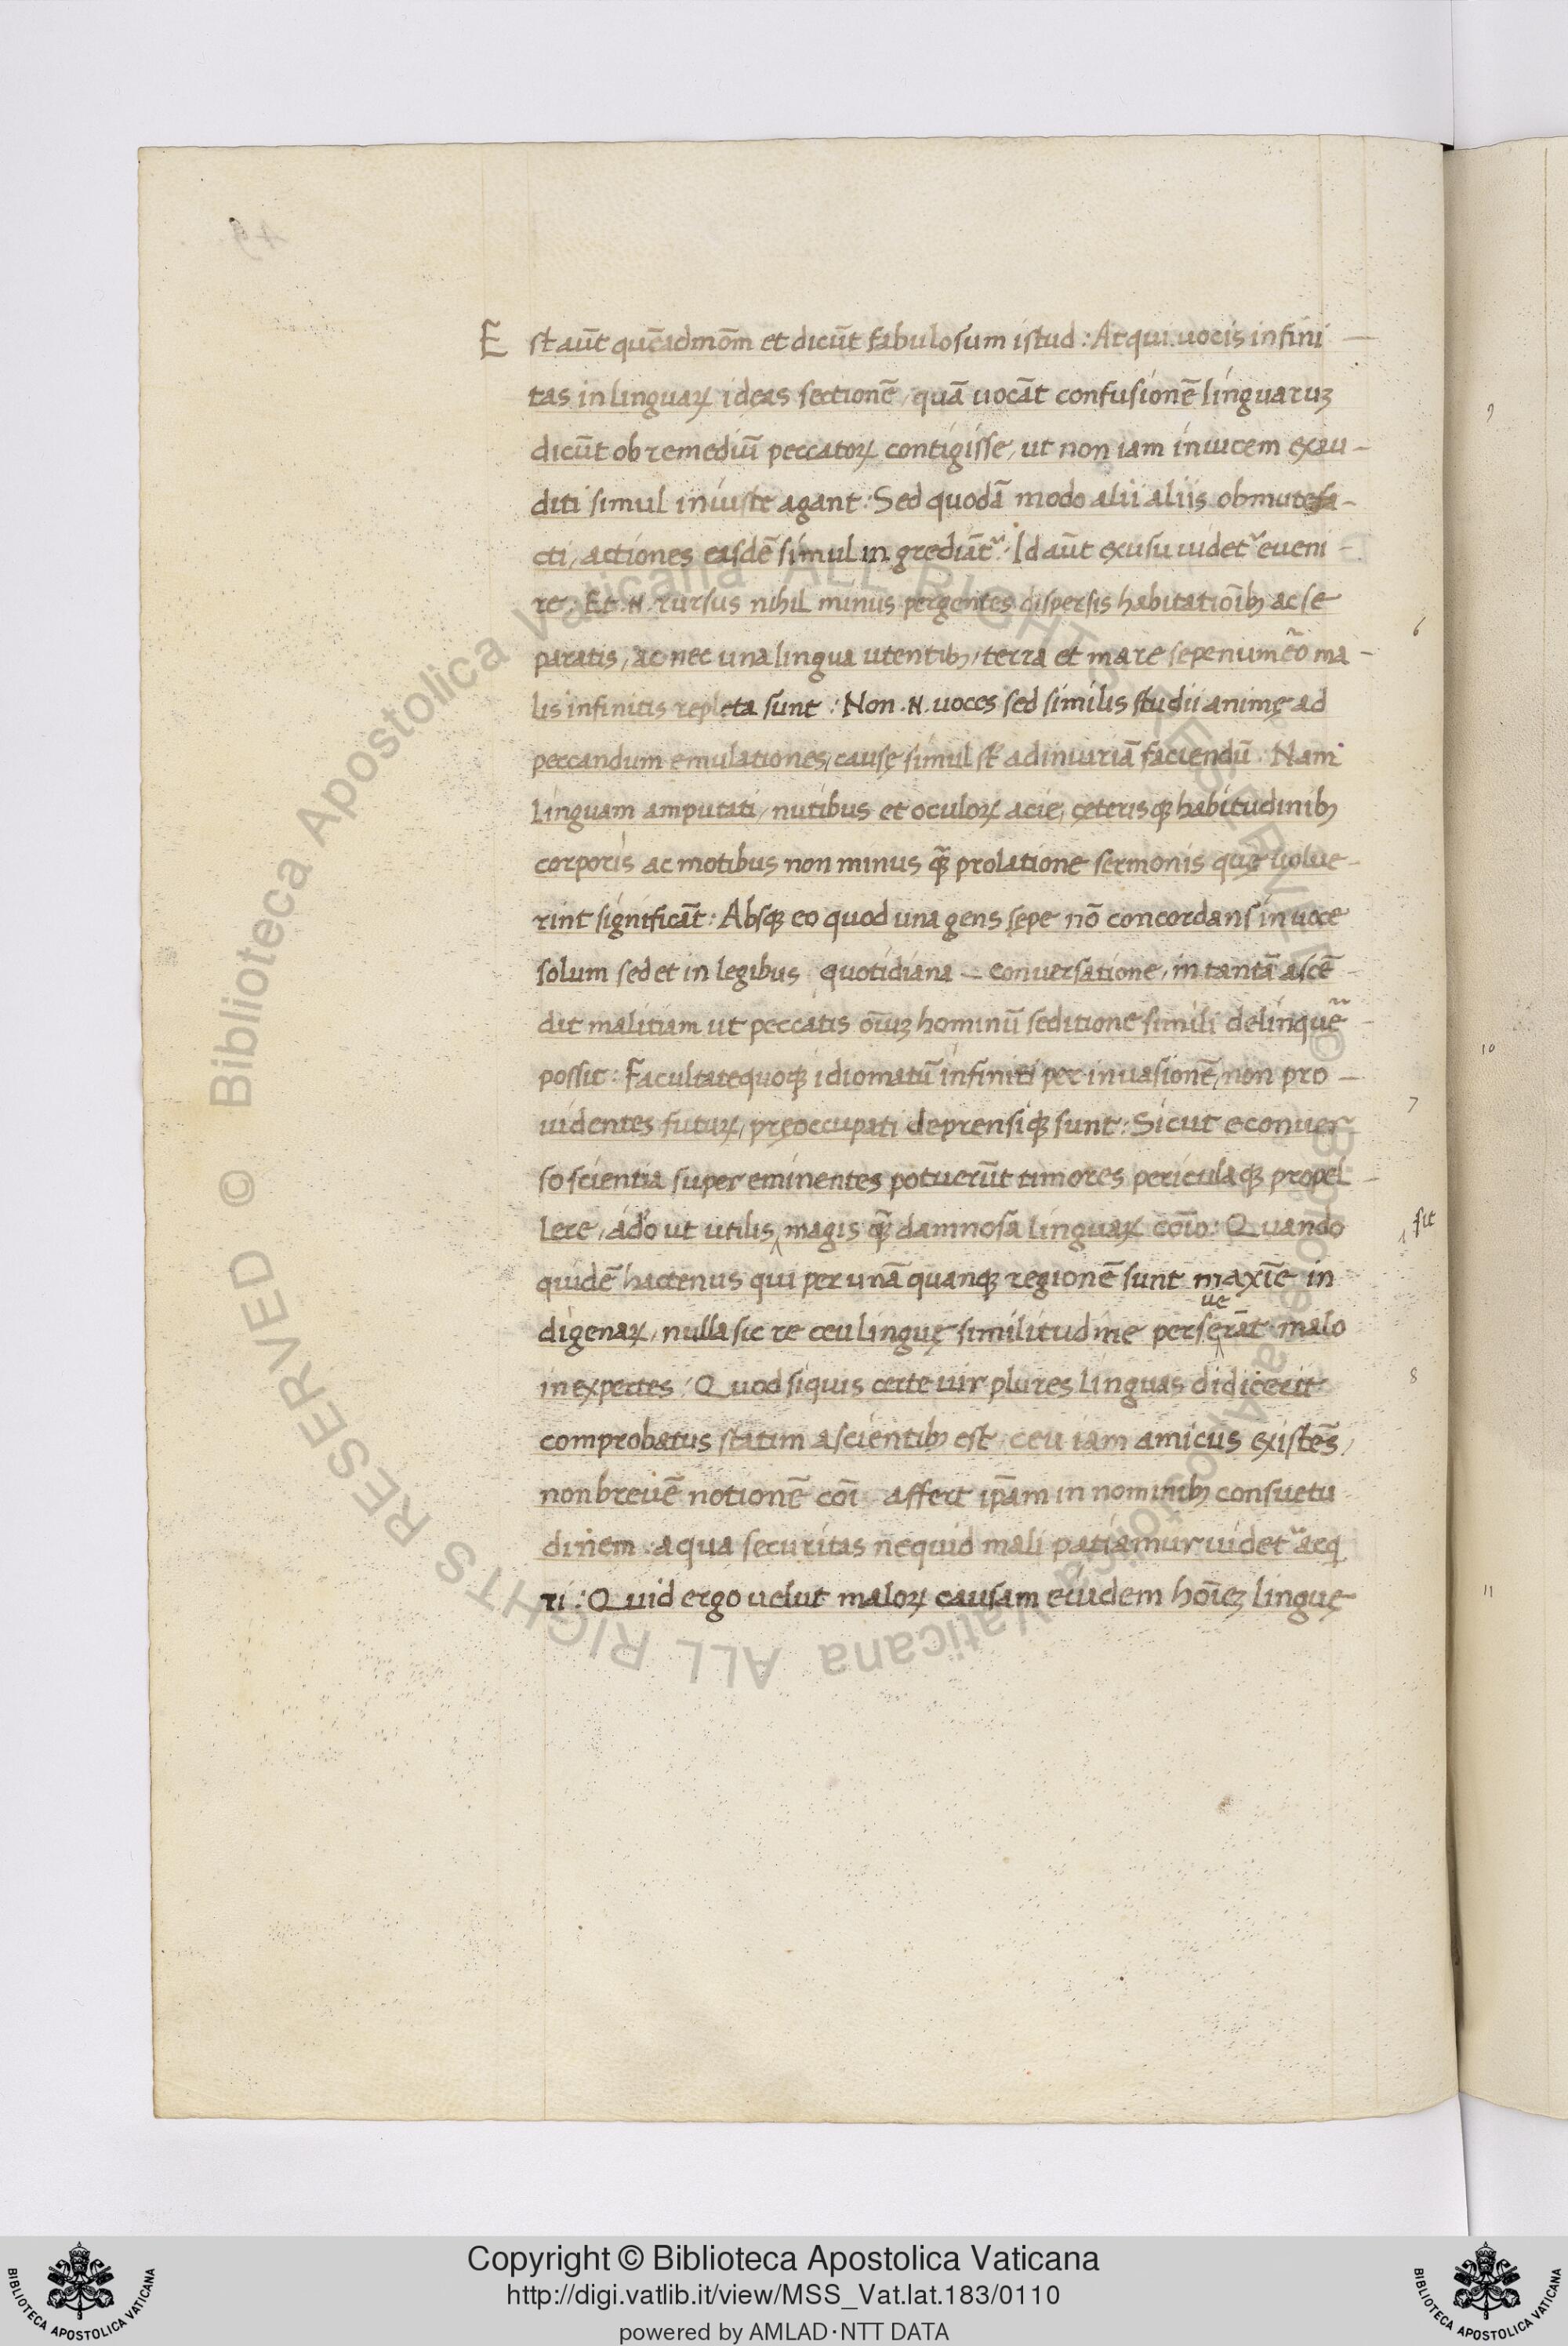 Est aūt quēadmōm et dicūt fabulosum istud: Atqui vocis infini-
tas in linguaꝝ ideas sectionē, quā vocāt confusionē linguaruꝫ
dicūt ob remediū peccatoꝝ contigisse, ut non iam invicem exau-
diti simul iniuste agant: Sed quodā modo alii aliis obmutefa-
cti, actiones easdē simul ingrediāt᷑. Id aūt ex usu videt᷑ eveni-
re. Et .N. rursus nihil minus pergentes dispersis habitatiōibꝫ ac se
paratis, ac nec una lingua utentibꝫ, terra et mare sepenumēo ma-
lis infinitis repleta sunt: Non .N. voces sed similis studii animę ad
peccandum emulationes, causę simul st̄ ad iniuriā faciendū. Nam
linguam amputati, nutibus et oculoꝝ acie, çeterisqꝫ habitudinibꝫ
corporis ac motibus non minus qꝫ̄ prolatione sermonis quę volue-
rint significāt: Absqꝫ eo quod una gens sępe nō concordans in voce
solum sed et in legibus quotidiana — conversatione, in tantā ascē-
dit malitiam ut peccatis oīuꝫ hominū seditione simili delinque᷑̄-
possit: Facultatequoqꝫ idiomatū infiniti per invasionē, non pro-
videntes futuꝝ, pręoccupati deprensiqꝫ sunt: Sicut econver
so scientia supereminentes potuerūt timores periculaqꝫ propel-
lere, ad'o ut utilis ‸ magis qꝫ̄ damnosa linguaꝝ cōīo: Quando
sit
quidē hactenus qui per unā quanqꝫ regionē sunt maxīe in
ve
digenaꝝ, nulla sic re ceu linguę similitudine perse‸rāt malo
inexpertes: Quod siquis certe vir plures linguas didicerit
comprobatus statim a scientibꝫ est, ceu iam amicus existēs,
non brevē notionē cōī affert ip̄am in nominibꝫ consuetu
dinem: a qua securitas nequid mali patiamur videt᷑ acq
ri: Quid ergo velut maloꝝ causam eiudem hōīeꝫ linguę
6
7
8
9
10
11
Copyright © Biblioteca Apostolica Vaticana
http://digi.vatlib.it/view/MSS_Vat.lat.183/0110
powered by AMLAD·NTT DATA
BIBLIOTECA APOSTOLICA VATICANA
BIBLIOTECA APOSTOLICA VATICANA